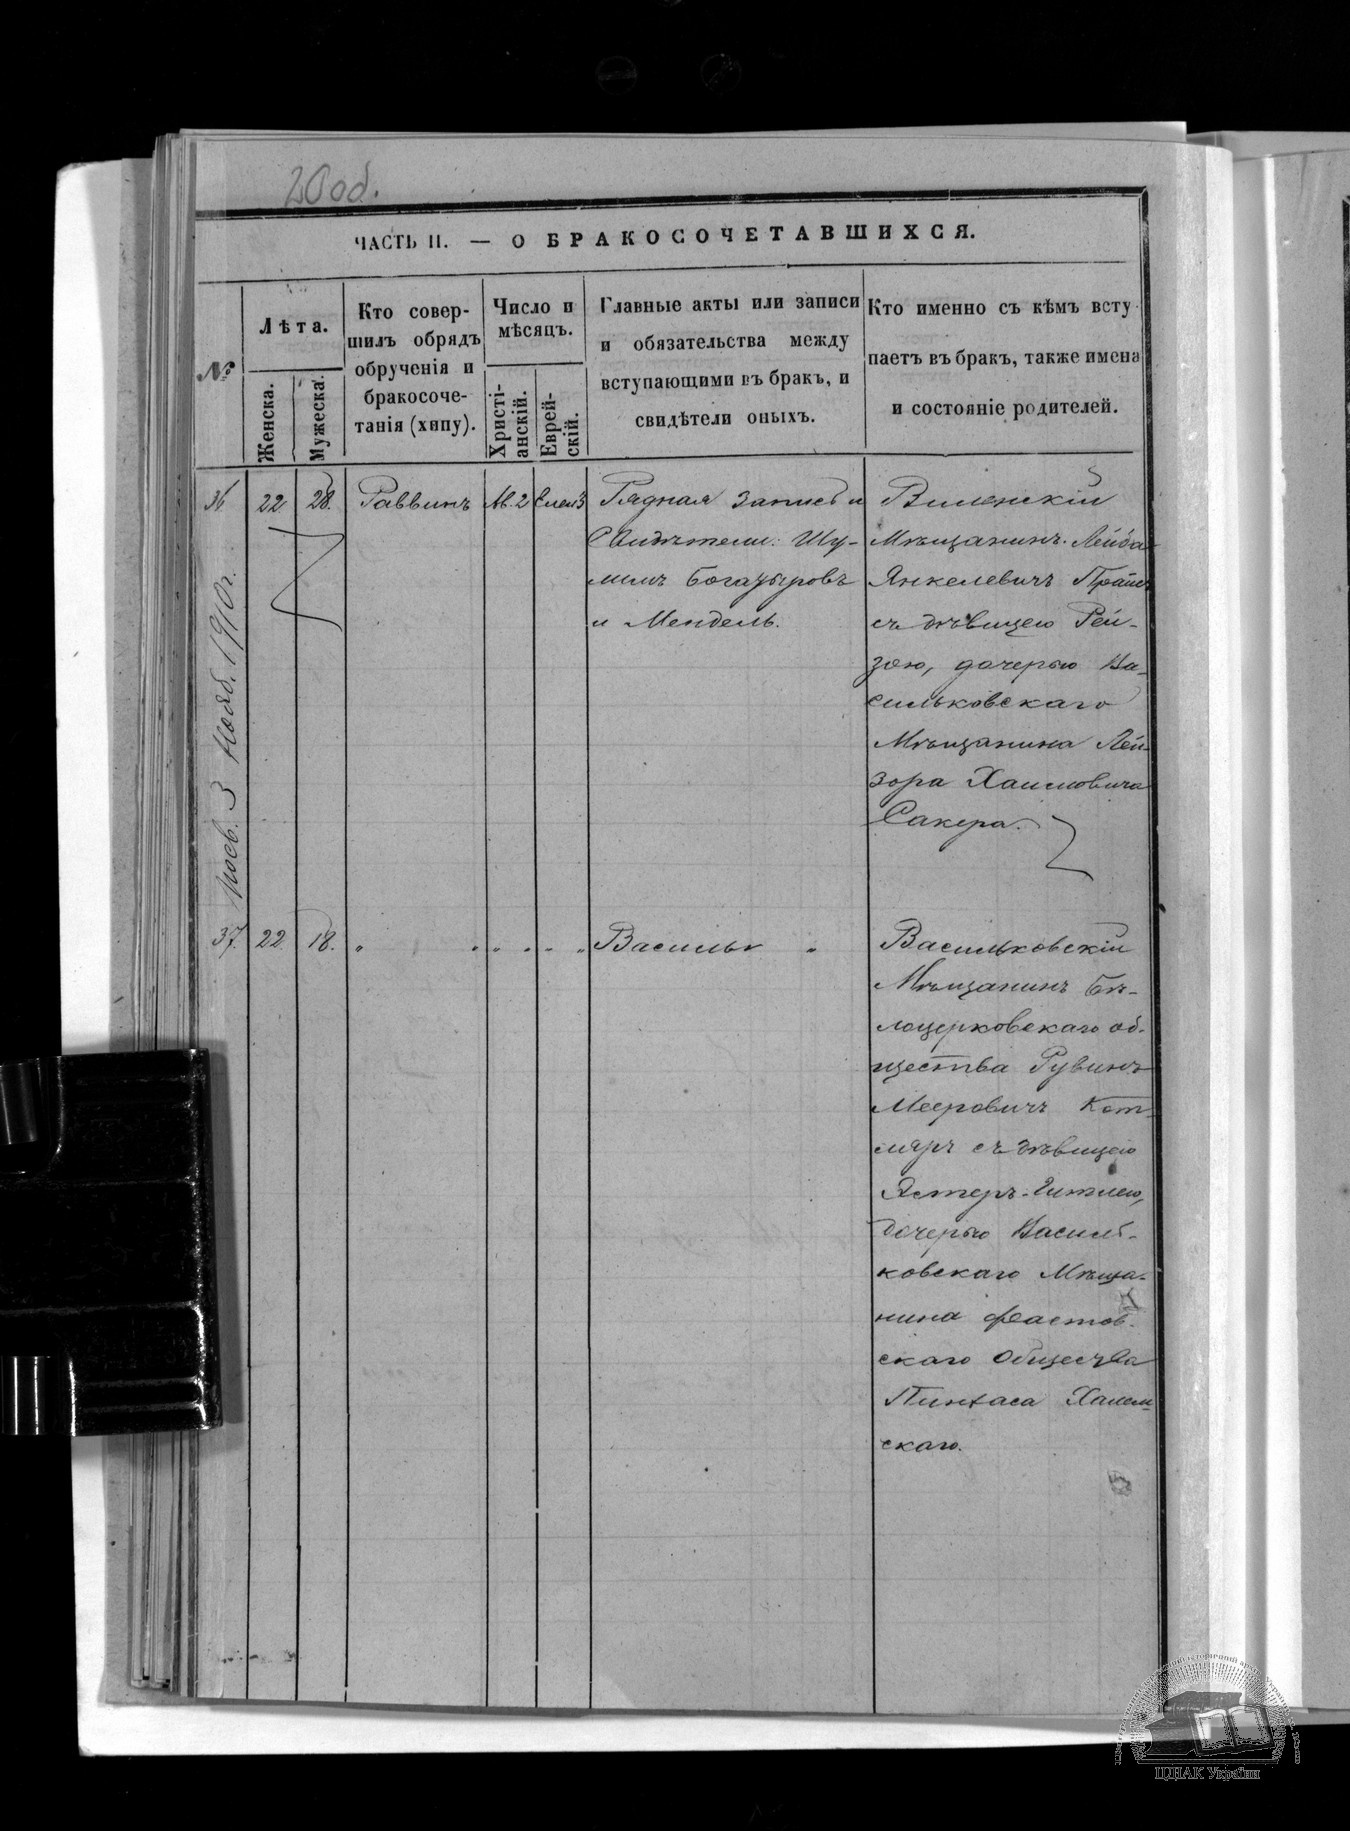 20 об.
ЧАСТЬ II. — О БРАКОСОЧЕТАВШИХСЯ.
№
Лѣта.
Женска.
Мужеска.
Кто совер-
шилъ обрядъ
обрученія и
бракосоче-
танія (хипу).
Число и
мѣсяцъ.
Христі-
анскій.
Еврей-
скій.
Главные акты или записи
и обязательства между
вступающими въ бракъ, и
свидѣтели оныхъ.
Кто именно съ кѣмъ всту
паетъ въ бракъ, также имена
и состояніе родителей.
36
22
28.
Раввинъ
Ав. 2
Елел 3
Рядная запись и
Свидѣтели: Шу-
лимъ Богатыровъ
и Мендель.
Виленскій
Мѣщанинъ Лейба
Янкелевичъ
съ дѣвицею Рей-
зою, дочерью Ва-
сильковскаго
Мѣщанина Лей-
зора Хаимовича
Сакера.
3 Нояб. 1910 г.
37.
22
18.
" " " " " "
Васильк "
Васильковскій
Мѣщанинъ Бѣ-
лоцерковскаго об-
щества Рувинъ
Мееровичъ Кот-
ляръ съ дѣвицею
Эстеръ-Гитлею,
дочерью Василь-
ковскаго Мѣща-
нина Фастов-
скаго Общества
Пинхаса
скаго.
ЦДІАК України